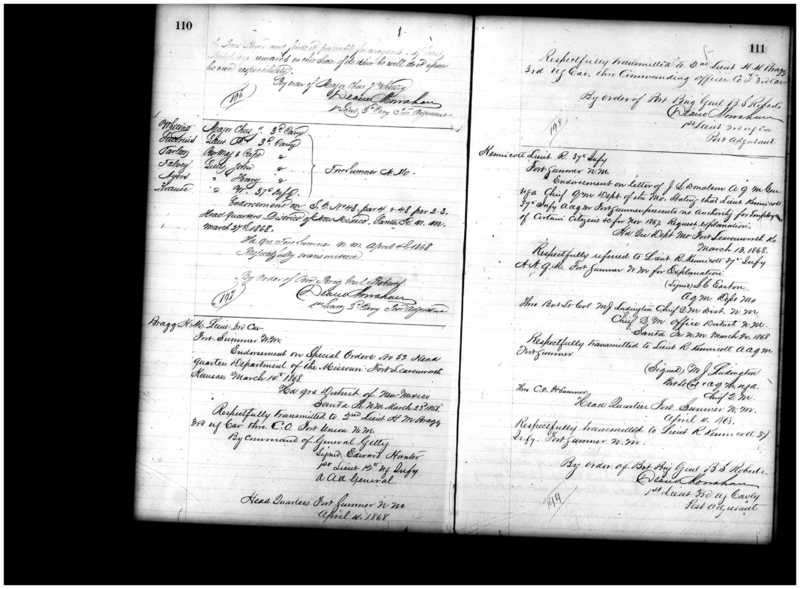 110
By order of Major Chas J Whiting
Deane Monahan
1st Lieut 3d Cavy Post Adjutant
196
Whiting Major Chas J. 3d Cavy
Lieut 3d Cavy
Tarlton
Falvey Lieut John "
Ayers " Henry "
Krause " Wm 37th Infy
Fort Sumner N. Mo.
Endorsement on S. O. No 48. par 4 & 48. par 2-3.
Head quarters District of New Mexico, Santa Fe N. M.
March 27th 1868.
Hd qrs Fort Sumner N. M. April 4th 1868
Respectfully transmitted
By Order of Bvt Brig Genl Roberts
Deane Monahan
1st Lieut 3d Cavy Post Adjutant
Bragg H. M. Lieut. 3rd Cav
Fort Sumner N. Mo.
Endorsement on Special Orders No 52 Head
quarters Department of the Missouri Fort Leavenworth
Kansas March 10th 1868.
Hd qrs District of New Mexico
Santa Fe N.M. March 23d 1868.
Respectfully transmitted to 2nd Lieut H. M. Bragg
3rd US Car thro C.O. Fort Union N. M.
By Command of General Getty
Signed Edward Hunter
1st Lieut 12th US Infy
A. A. A. General
Head Quarters Fort Sumner N Mo
April 4. 1868
111
Respectfully transmitted to 2nd Lieut H M Bragg
3rd US Car. thro Commanding officer Co 3rd Car
By order of Bvt Brig Genl B S Roberts
Deane Monahan
1st Lieut 3rd US Ca
Post Adjutant
198
Kennicott Lieut R. 37 Infy
Fort Sumner N. M.
Endorsement on letter of J. L. Donaldson A Q M Gen
USA Chief Q M Dept of the Mo. Stating that Lieut Kennicott
37 Infy A A Q M Fort Sumner presents no Authority for Employ
of Certain Citizens &c for Nov 1867 Request explanation.
Hd Qrs Dept Mo Fort Leavenworth Ks
March 13. 1868.
Respectfully referred to Lieut R Kennicott 37 Infy
A A. Q M. Fort Sumner N. M for Explanation
(Signed) L C Easton
A Q M. Dept Mo
Thro Bvt Lt Col M J Ludington Chief Q M Dist. N. M.
Chief Q M Office District N. M.
Santa Fe N. M March 30. 1868
Respectfully transmitted to Lieut R Kennicott A. A. Q M.
Fort Sumner
(Signed) M J Ludington
Chief Q M.
Thro C. O. Ft Sumner
Head Quarters Fort Sumner N. M.
April 4. 1868.
Respectfully transmitted to Lieut R Kennicott 37
Infy. Fort Sumner N. M.
By order of Bvt Brig Genl B S Roberts
Deane Monahan
1st Lieut 3rd US Cavly
Post Adjutant
199